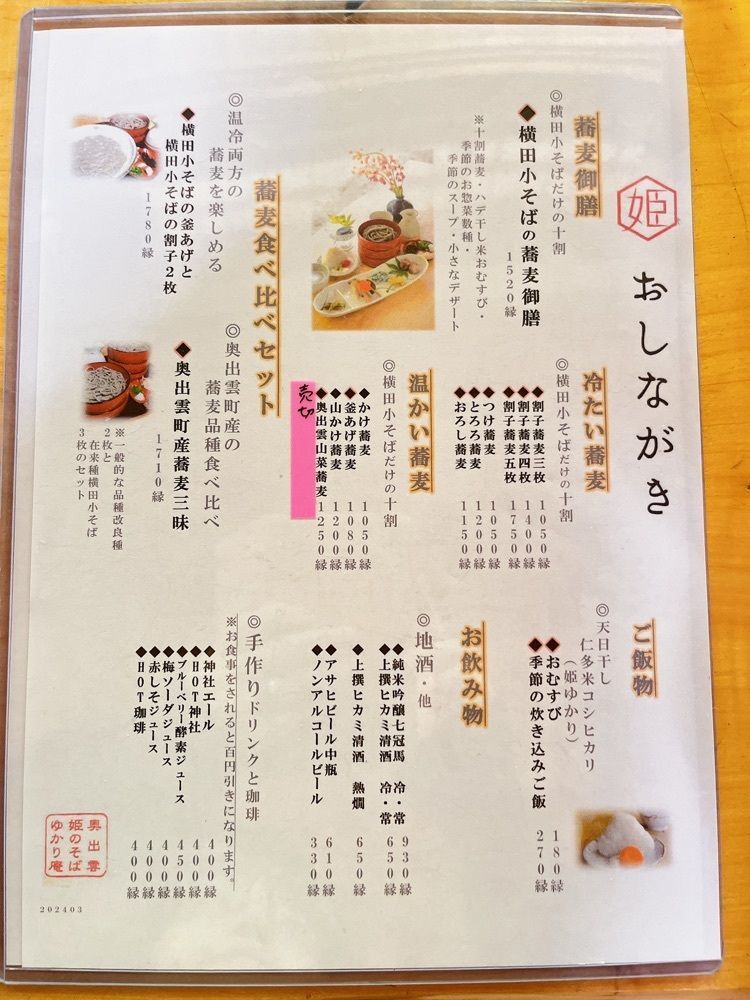 姫
おしながき
蕎麦御膳
◎横田小そばだけの十割
◆横田小そばの蕎麦御膳
1520縁
※十割蕎麦・ハデ干し米おむすび・
季節のお惣菜数種・
季節のスープ・小さなデザート
冷たい蕎麦
◎横田小そばだけの十割
◆割子蕎麦三枚 1050縁
◆割子蕎麦四枚 1400縁
◆割子蕎麦五枚 1750縁
◆つけ蕎麦 1050縁
◆とろろ蕎麦 1200縁
◆おろし蕎麦 1150縁
温かい蕎麦
◎横田小そばだけの十割
◆かけ蕎麦 1050縁
◆釜あげ蕎麦 1080縁
◆山かけ蕎麦 1200縁
◆奥出雲山菜蕎麦 1250縁
売切
蕎麦食べ比べセット
◎温冷両方の
蕎麦を楽しめる
◆横田小そばの釜あげと
横田小そばの割子2枚
1780縁
◎奥出雲町産の
蕎麦品種食べ比べ
◆奥出雲町産蕎麦三昧
1710縁
※一般的な品種改良種
2枚と
在来種横田小そば
3枚のセット
ご飯物
◎天日干し
仁多米コシヒカリ
(姫ゆかり)
◆おむすび 180縁
◆季節の炊き込みご飯 270縁
お飲み物
◎地酒・他
◆純米吟醸七冠馬 冷・常 930縁
◆上撰ヒカミ清酒 冷・常 650縁
◆上撰ヒカミ清酒 熱燗 650縁
◆アサヒビール中瓶 610縁
◆ノンアルコールビール 330縁
◎手作りドリンクと珈琲
※お食事をされると百円引きになります。
◆神社エール 400縁
◆HOT神社 400縁
◆ブルーベリー酵素ジュース 450縁
◆梅ソーダジュース 400縁
◆赤しそジュース 400縁
◆HOT珈琲 400縁
奥出雲
姫のそば
ゆかり庵
202403